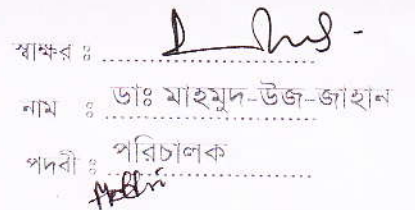 স্বাক্ষর ঃ
নাম ঃ ডাঃ মাহমুদ-উজ-জাহান
পদবী ঃ পরিচালক